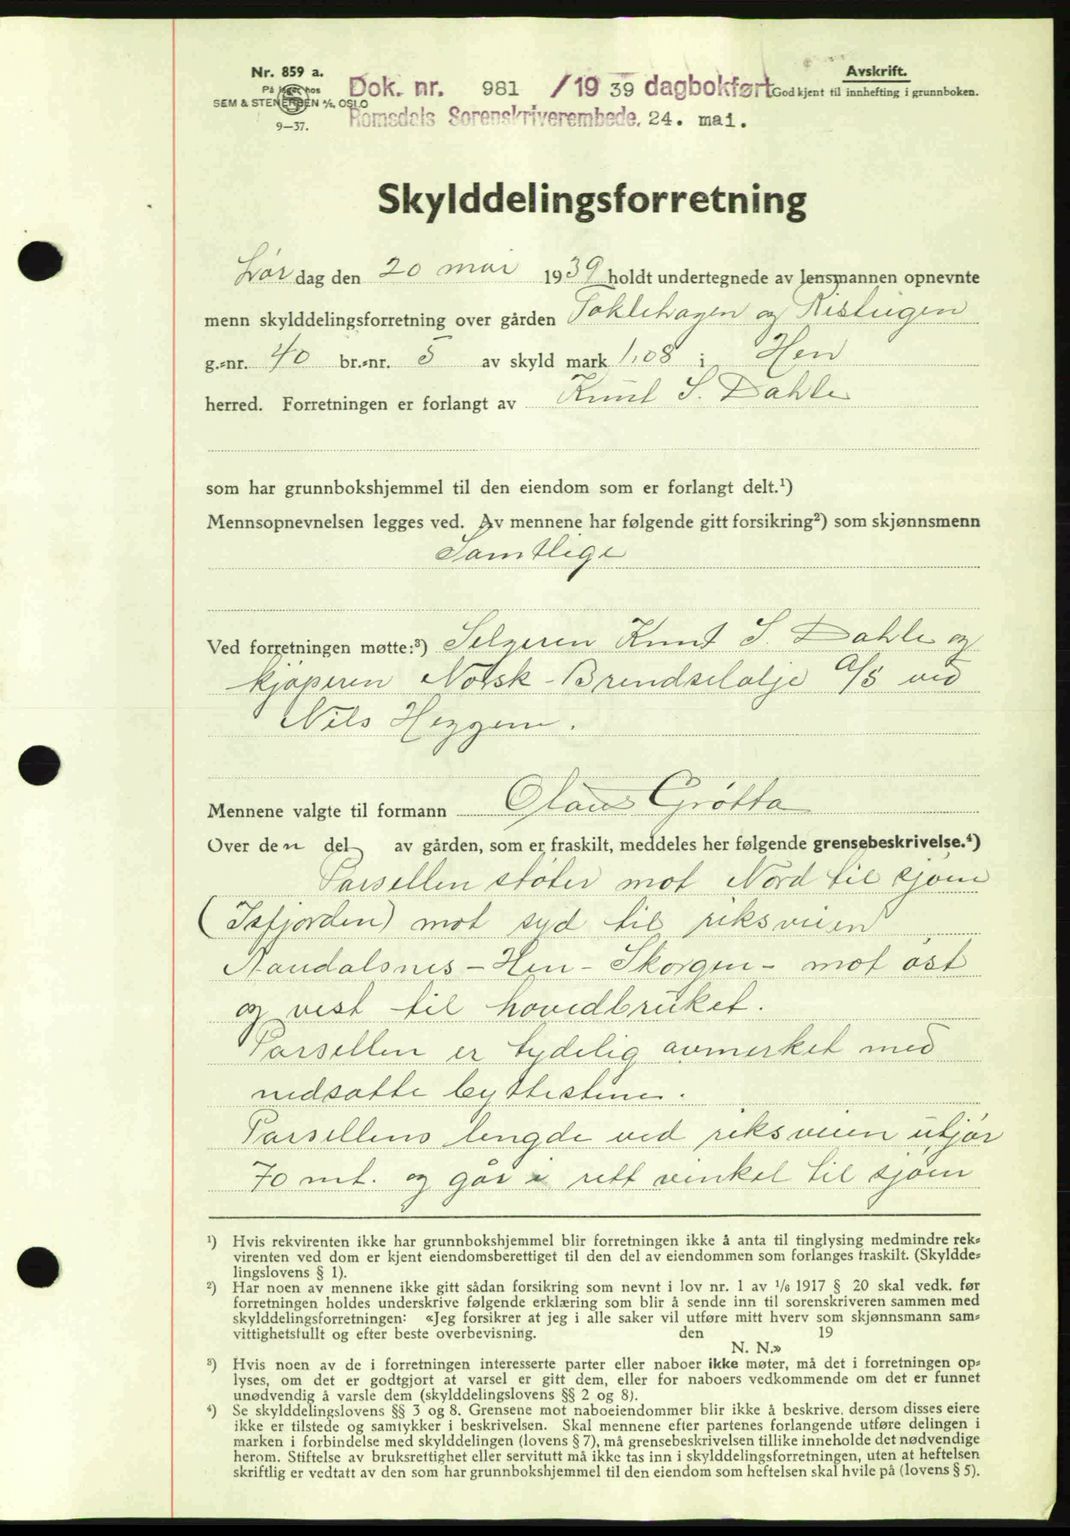 Nr. 859 a.
På lager hos
SEM & STENERSEN A/S, OSLO
9—37.
Dok. nr. 981 /19 39 dagbokført
Romsdals Sorenskriverembede, 24. mai.
Avskrift.
Godkjent til innhefting i grunnboken.
Skylddelingsforretning
Lør dag den 20 mai 1939 holdt undertegnede av lensmannen opnevnte
menn skylddelingsforretning over gården Toklehagen og Ristugen
g.-nr. 40 br.-nr. 5 av skyld mark 1,08 i Hen
herred. Forretningen er forlangt av Knut S. Dahle
som har grunnbokshjemmel til den eiendom som er forlangt delt.¹)
Mennsopnevnelsen legges ved. Av mennene har følgende gitt forsikring²) som skjønnsmenn
Samtlige
Ved forretningen møtte:³) Selgeren Knut S. Dahle og
kjøperen Norsk-Brendselolje A/S ved
Nils Heggem.
Mennene valgte til formann Olaus Grøtta
Over den del av gården, som er fraskilt, meddeles her følgende grensebeskrivelse.⁴)
Parsellen støter mot Nord til sjøen
(Isfjorden) mot syd til riksveien
Aandalsnes-Hen-Skorgen- mot øst
og vest til hovedbruket.
Parsellen er tydelig avmerket med
nedsatte byttestene.
Parsellens lengde ved riksveien utjør
70 mt. og går i rett vinkel til sjøen
¹) Hvis rekvirenten ikke har grunnbokshjemmel blir forretningen ikke å anta til tinglysing medmindre rek-
virenten ved dom er kjent eiendomsberettiget til den del av eiendommen som forlanges fraskilt. (Skyldde-
lingslovens § 1).
²) Har noen av mennene ikke gitt sådan forsikring som nevnt i lov nr. 1 av 1/6 1917 § 20 skal vedk. før
forretningen holdes underskrive følgende erklæring som blir å sende inn til sorenskriveren sammen med
skylddelingsforretningen: «Jeg forsikrer at jeg i alle saker vil utføre mitt hverv som skjønnsmann sam-
vittighetsfullt og efter beste overbevisning. den 19
N. N.»
³) Hvis noen av de i forretningen interesserte parter eller naboer ikke møter, må det i forretningen op-
lyses, om det er godtgjort at varsel er gitt dem, eller for naboers vedkommende om det er funnet
unødvendig å varsle dem (skylddelingslovens §§ 2 og 8).
⁴) Se skylddelingslovens §§ 3 og 8. Grensene mot naboeiendommer blir ikke å beskrive, dersom disses eiere
ikke er tilstede og samtykker i beskrivelsen. Skal mennene efter partenes forlangende utføre delingen i
marken i forbindelse med skylddelingen (lovens § 7), må grensebeskrivelsen tillike inneholde det nødvendige
herom. Stiftelse av bruksrettighet eller servitutt må ikke tas inn i skylddelingsforretningen, uten at heftelsen
skriftlig er vedtatt av den som har grunnbokshjemmel til den eiendom som heftelsen skal hvile på (lovens § 5).